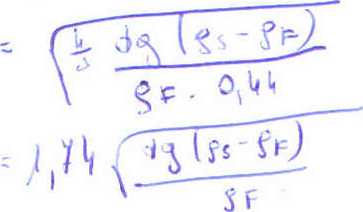 = √(4/3 dg (ρs - ρF) / ρF · 0,44)
= 1,74 √(dg (ρs - ρF) / ρF)